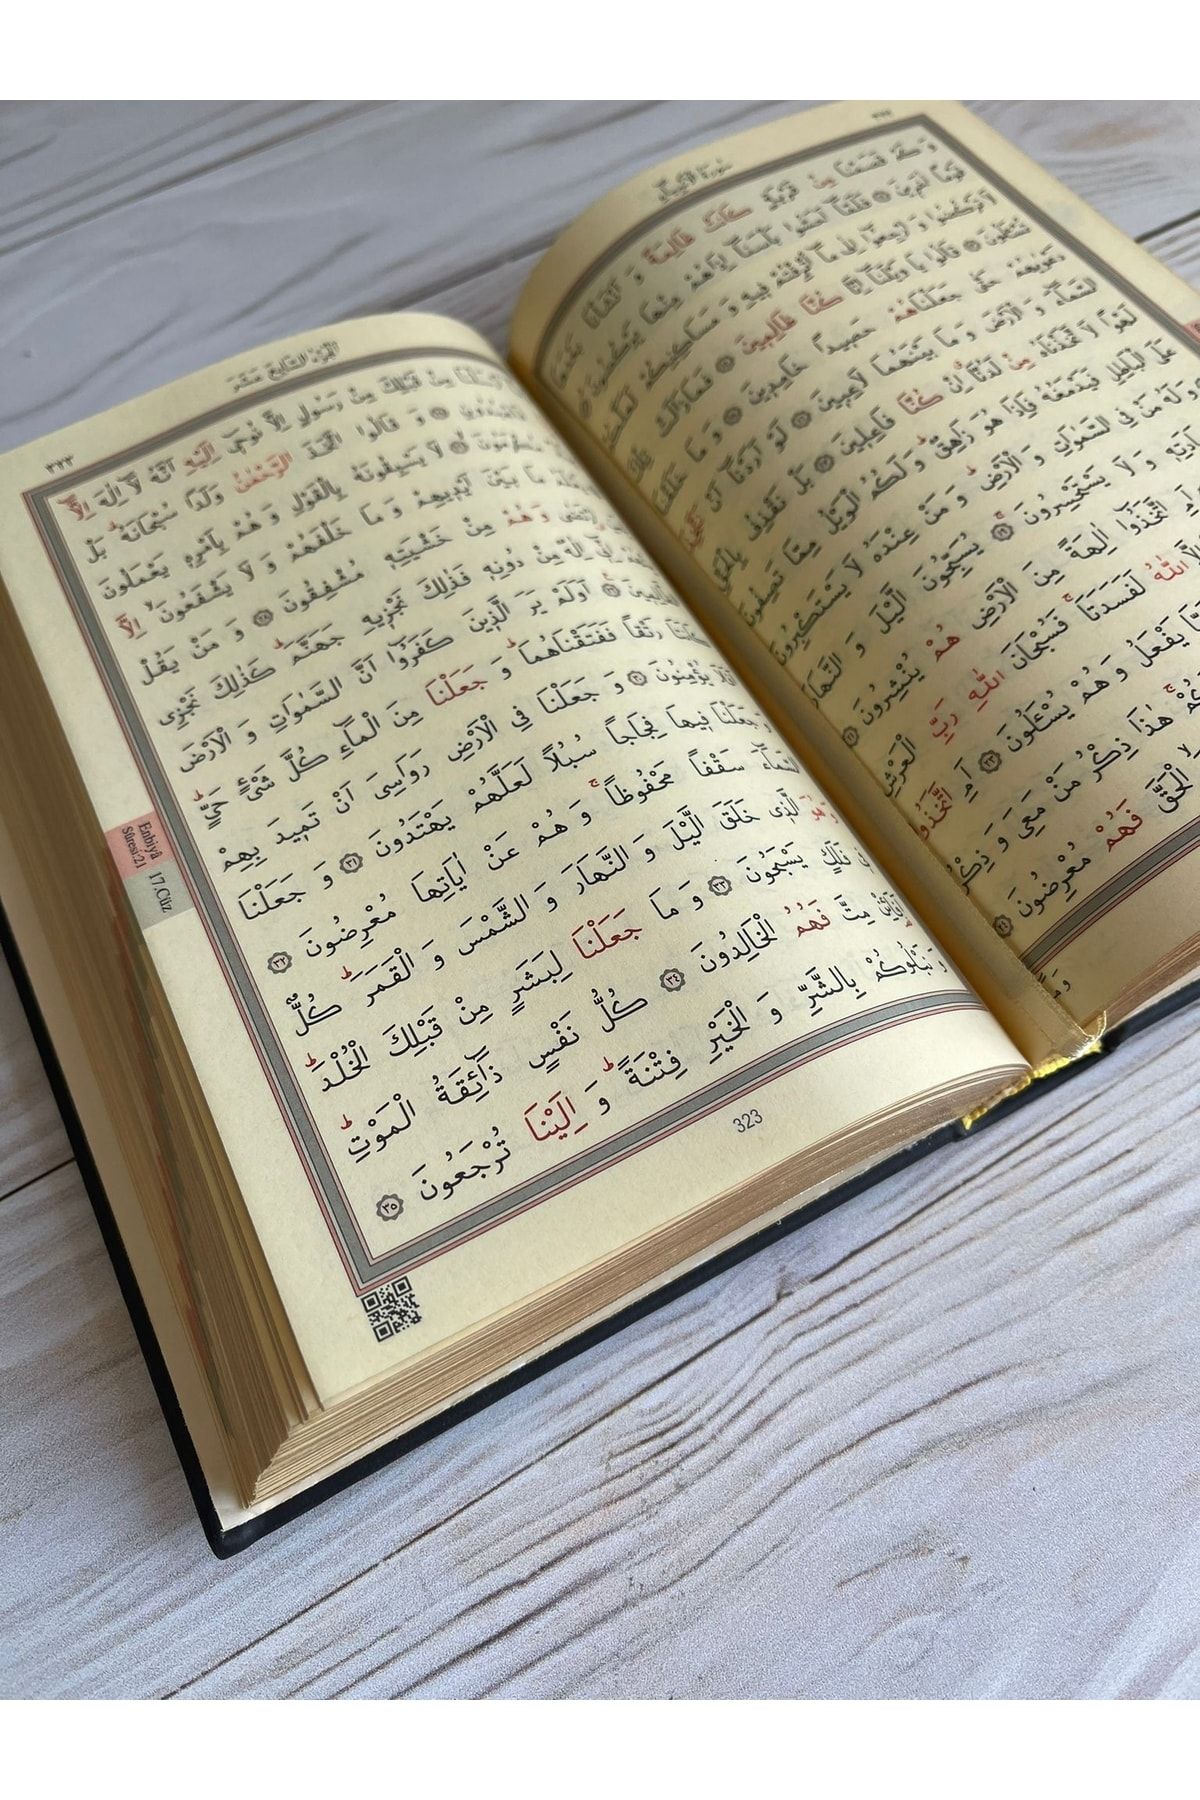 سُورَةُ الْاَنْبِيَاءِ
وَ كَمْ قَصَمْنَا مِنْ قَرْيَةٍ كَانَتْ ظَالِمَةً وَ اَنْشَأْنَا بَعْدَهَا
قَوْمًا اٰخَرِينَ ١١ فَلَمَّٓا اَحَسُّوا بَأْسَنَٓا اِذَا هُمْ مِنْهَا يَرْكُضُونَ
لَا تَرْكُضُوا وَ ارْجِعُٓوا اِلٰى مَٓا اُتْرِفْتُمْ فِيهِ وَ مَسَاكِنِكُمْ لَعَلَّكُمْ
تُسْـَٔلُونَ ١٣ قَالُوا يَا وَيْلَنَٓا اِنَّا كُنَّا ظَالِمِينَ ١٤ فَمَا زَالَتْ تِلْكَ
دَعْوٰيهُمْ حَتّٰى جَعَلْنَاهُمْ حَصِيدًا خَامِدِينَ ١٥ وَ مَا خَلَقْنَا
السَّمَٓاءَ وَ الْاَرْضَ وَ مَا بَيْنَهُمَا لَاعِبِينَ ١٦ لَوْ اَرَدْنَٓا اَنْ
لَهْوًا لَاتَّخَذْنَاهُ مِنْ لَدُنَّٓا اِنْ كُنَّا فَاعِلِينَ ١٧ بَلْ نَقْذِفُ بِالْحَقِّ
عَلَى الْبَاطِلِ فَيَدْمَغُهُ فَاِذَا هُوَ زَاهِقٌ ط وَ لَكُمُ الْوَيْلُ مِمَّا تَصِفُونَ
وَ لَهُ مَنْ فِي السَّمٰوَاتِ وَ الْاَرْضِ ط وَ مَنْ عِنْدَهُ لَا يَسْتَكْبِرُونَ
وَ لَا يَسْتَحْسِرُونَ ج ١٩ يُسَبِّحُونَ الَّيْلَ وَ النَّهَارَ
اتَّخَذُٓوا اٰلِهَةً مِنَ الْاَرْضِ هُمْ يُنْشِرُونَ ٢١
اللّٰهُ لَفَسَدَتَا ج فَسُبْحَانَ اللّٰهِ رَبِّ الْعَرْشِ
يَفْعَلُ وَ هُمْ يُسْـَٔلُونَ ٢٣ اَمِ اتَّخَذُوا
هٰذَا ذِكْرُ مَنْ مَعِيَ وَ ذِكْرُ
الْحَقَّ فَهُمْ مُعْرِضُونَ ٢٤
اَلْجُزْءُ السَّابِعَ عَشَرَ
٣٢٣
اَرْسَلْنَا مِنْ قَبْلِكَ مِنْ رَسُولٍ اِلَّا نُوحِٓي اِلَيْهِ اَنَّهُ لَٓا اِلٰهَ اِلَّٓا
فَاعْبُدُونِ ٢٥ وَ قَالُوا اتَّخَذَ الرَّحْمٰنُ وَلَدًا سُبْحَانَهُ ط بَلْ
مُكْرَمُونَ ٢٦ لَا يَسْبِقُونَهُ بِالْقَوْلِ وَ هُمْ بِاَمْرِهِ يَعْمَلُونَ
مَا بَيْنَ اَيْدِيهِمْ وَ مَا خَلْفَهُمْ وَ لَا يَشْفَعُونَ لا اِلَّا
ارْتَضٰى وَ هُمْ مِنْ خَشْيَتِهِ مُشْفِقُونَ ٢٨ وَ مَنْ يَقُلْ
اِنِّٓي اِلٰهٌ مِنْ دُونِهِ فَذٰلِكَ نَجْزِيهِ جَهَنَّمَ ط كَذٰلِكَ نَجْزِي
الظَّالِمِينَ ٢٩ اَوَلَمْ يَرَ الَّذِينَ كَفَرُٓوا اَنَّ السَّمٰوَاتِ وَ الْاَرْضَ
كَانَتَا رَتْقًا فَفَتَقْنَاهُمَا ط وَ جَعَلْنَا مِنَ الْمَٓاءِ كُلَّ شَيْءٍ حَيٍّ ط
اَفَلَا يُؤْمِنُونَ ٣٠ وَ جَعَلْنَا فِي الْاَرْضِ رَوَاسِيَ اَنْ تَمِيدَ بِهِمْ
وَ جَعَلْنَا فِيهَا فِجَاجًا سُبُلًا لَعَلَّهُمْ يَهْتَدُونَ ٣١ وَ جَعَلْنَا
السَّمَٓاءَ سَقْفًا مَحْفُوظًا ج وَ هُمْ عَنْ اٰيَاتِهَا مُعْرِضُونَ ٣٢
وَ هُوَ الَّذِي خَلَقَ الَّيْلَ وَ النَّهَارَ وَ الشَّمْسَ وَ الْقَمَرَ ط كُلٌّ
فِي فَلَكٍ يَسْبَحُونَ ٣٣ وَ مَا جَعَلْنَا لِبَشَرٍ مِنْ قَبْلِكَ الْخُلْدَ ط
مِتَّ فَهُمُ الْخَالِدُونَ ٣٤ كُلُّ نَفْسٍ ذَٓائِقَةُ الْمَوْتِ ط
وَ نَبْلُوكُمْ بِالشَّرِّ وَ الْخَيْرِ فِتْنَةً ط وَ اِلَيْنَا تُرْجَعُونَ ٣٥
Enbiyâ
Sûresi:21
17.Cüz
323